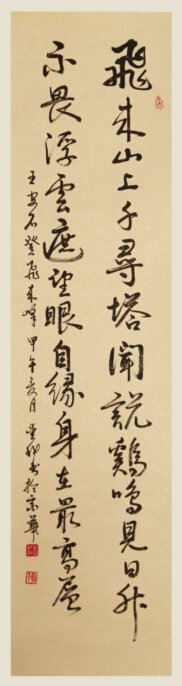 飛来山上千尋塔聞説鷄鳴見日升
不畏浮雲遮望眼自緣身在最高層
王安石登飛来峰 甲午亥月 书於京華